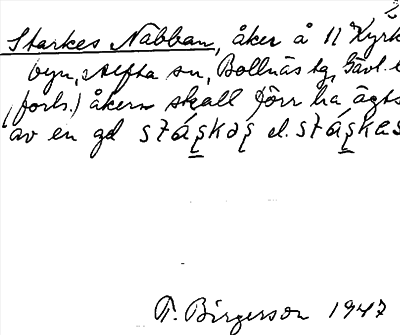 Starkes Nabban, åker å n:r 2 Kyrk
byn, Alfta sn, Bollnäs tg, Gävl. l
(forts.) åkern skall förr ha ägts
av en gd el.
T. Birgerson 1947